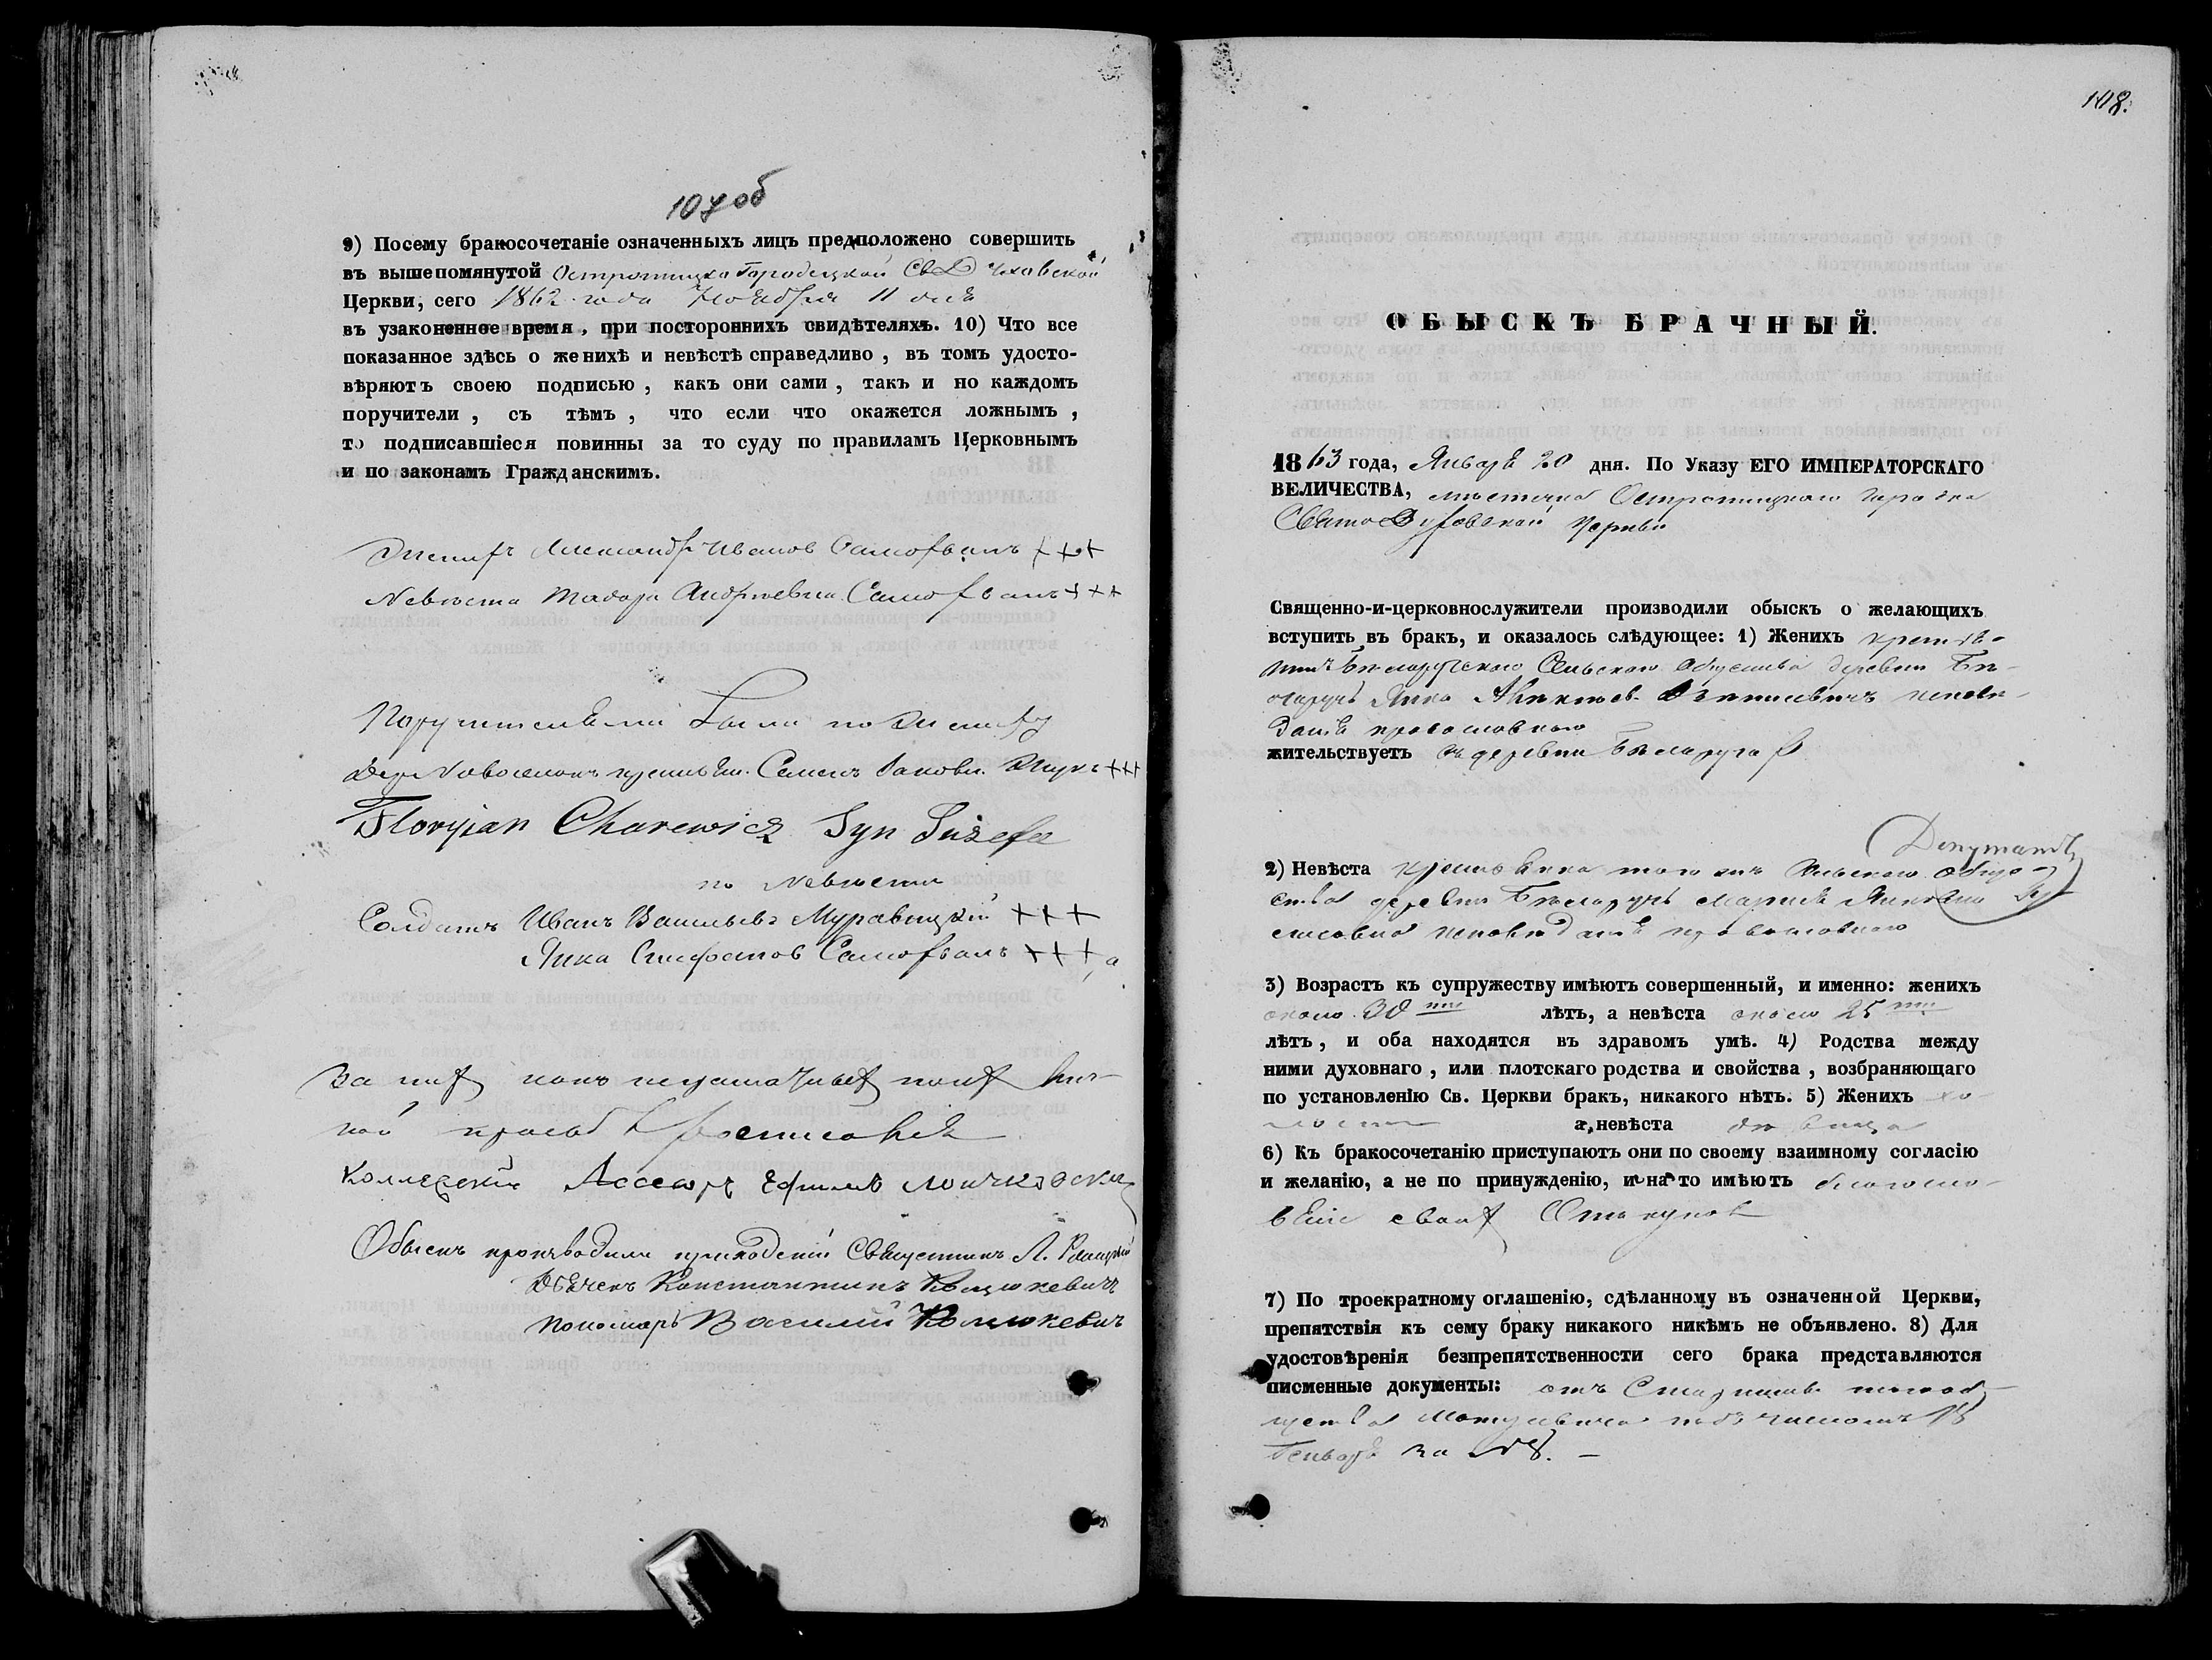 107об
9) Посему бракосочетаніе означенныхъ лицъ предположено совершить
въ вышепомянутой Острошицко Городецкой СвД уховской
Церкви, сего 1862 года Ноября 11 дня
въ узаконенное время, при постороннихъ свидѣтеляхъ. 10) Что все
показанное здѣсь о женихѣ и невѣстѣ справедливо, въ томъ удосто-
вѣряютъ своею подписью, какъ они сами, такъ и по каждомъ
поручители, съ тѣмъ, что если что окажется ложнымъ,
то подписавшіеся повинны за то суду по правиламъ Церковнымъ
и по законамъ Гражданскимъ.
Женихъ Александръ Ивановъ Самохвалъ +++
Невѣста Тадора Андреевна Самохвалъ +++
Поручителями были по Жениху
дер. Новоселокъ крестьян. Семенъ Жукъ +++
Floryjan Charewicz Syn Juzefa
по Невѣстѣ
Солдатъ Иванъ Васильевъ Муравицкій +++
Янка Стефановъ Самохвалъ +++
За ихъ какъ неграмотныхъ по ихъ лич-
ной прозьбѣ росписался
Коллежскій Ассесоръ Ефимъ
Обыскъ производили приходскій Священникъ Л. Раицкій
Дьячекъ Константинъ
Пономарь Василій
108.
ОБЫСКЪ БРАЧНЫЙ.
1863 года, Января 20 дня. По Указу ЕГО ИМПЕРАТОРСКАГО
ВЕЛИЧЕСТВА, мѣстечка Острошицкаго городка
Свято Духовской Церкви
Священно-и-церковнослужители производили обыскъ о желающихъ
вступить въ бракъ, и оказалось слѣдующее: 1) Женихъ крестья-
нинъ Бѣларучскаго Сельскаго Общества деревни Бѣ-
ларучь Янка исповѣ-
данія православнаго
жительствуетъ въ деревни Бѣларучах
2) Невѣста крестьянка того жъ сельскаго обще-
ства деревни Бѣларучь Марія
исповѣданія православнаго
3) Возрастъ къ супружеству имѣютъ совершенный, и именно: женихъ
около 30ти лѣтъ, а невѣста около 25ти
лѣтъ, и оба находятся въ здравомъ умѣ. 4) Родства между
ними духовнаго, или плотскаго родства и свойства, возбраняющаго
по установленію Св. Церкви бракъ, никакого нѣтъ. 5) Женихъ хо-
лостъ а, невѣста дѣвица
6) Къ бракосочетанію приступаютъ они по своему взаимному согласію
и желанію, а не по принужденію, и на то имѣютъ благосло-
веніе своихъ
7) По троекратному оглашенію, сдѣланному въ означенной Церкви,
препятствія къ сему браку никакого никѣмъ не объявлено. 8) Для
удостовѣренія безпрепятственности сего брака представляются
писменные документы: отъ Старшины того об-
щества Матусевича подъ числомъ 18
Генваря за №8. —